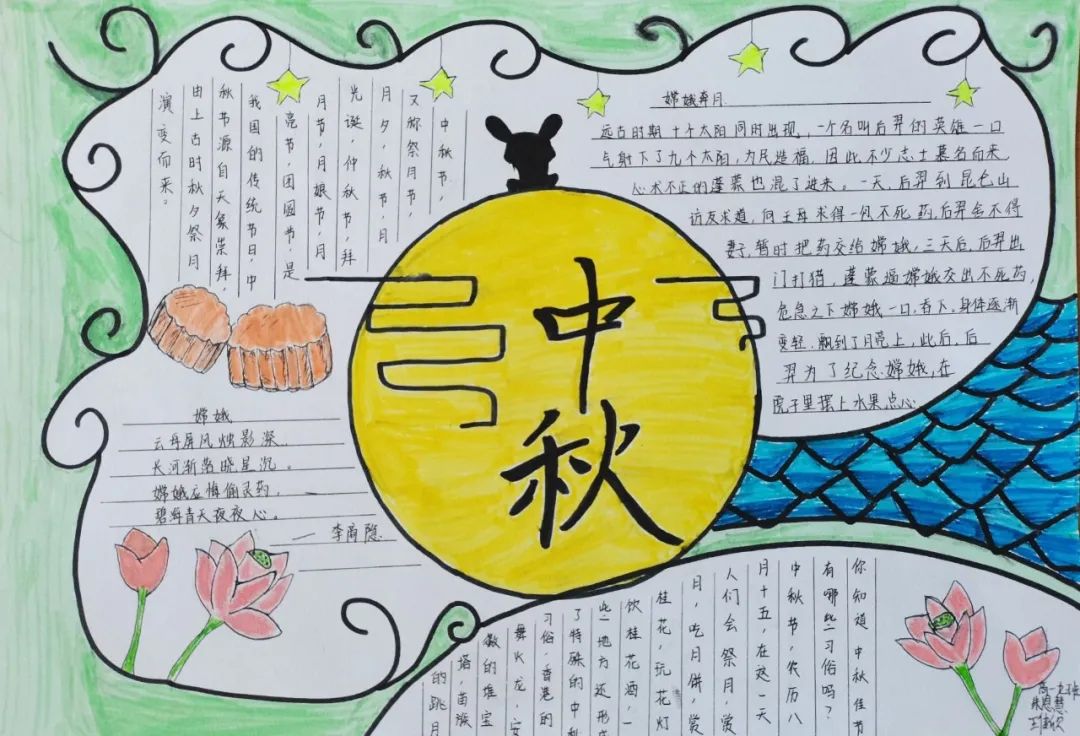 中秋节，
又称祭月节，
月夕，秋节，月
光诞，仲秋节，拜
月节，月娘节，月
亮节，团圆节，是
我国的传统节日，中
秋节源自天象崇拜，
由上古时秋夕祭月
演变而来。
嫦娥奔月
远古时期十个太阳同时出现，一个名叫后羿的英雄一口
气射下了九个太阳，为民造福，因此，不少志士慕名而来，
心术不正的蓬蒙也混了进来。一天，后羿到昆仑山
访友求道，向王母求得一包不死药，后羿舍不得
妻子，暂时把药交给嫦娥，三天后，后羿出
门打猎，蓬蒙逼嫦娥交出不死药，
危急之下嫦娥一口吞下，身体逐渐
变轻，飘到了月亮上，此后，后
羿为了纪念嫦娥，在
院子里摆上水果点心
中秋
嫦娥
云母屏风烛影深，
长河渐落晓星沉。
嫦娥应悔偷灵药，
碧海青天夜夜心。
——李商隐
你知道中秋佳节
有哪些习俗吗？
中秋节，农历八
月十五，在这一天
人们会祭月，赏
月，吃月饼，赏
桂花，玩花灯
饮桂花酒，一
些地方还形
了特殊的中
习俗，香港的
舞火龙，安
徽的堆宝
塔，苗族
的跳月